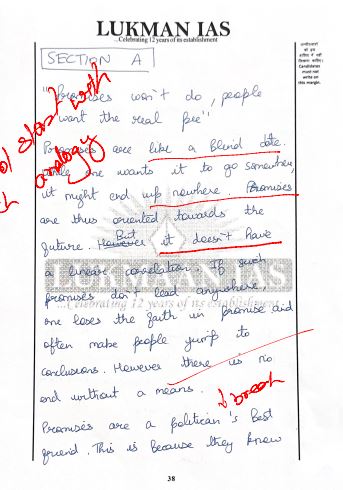 LUKMAN IAS
...Celebrating 12 years of its establishment
SECTION A
"Promises won't do, people
want the real
Promises are like a blind date.
one wants it to go somewhere,
it might end up nowhere. Promises
are thus oriented towards the
future. However But it doesn't have
a linear correlation. If such
promises don't lead anywhere.
one loses the faith in promise and
often make people jump to
conclusions. However there is no
end without a means.
break
Promises are a politician's best
friend. This is because they know
start with
analogy
Candidates
must not
write on
this margin.
LUKMAAN IAS
...Celebrating 12 years of its establishment
38